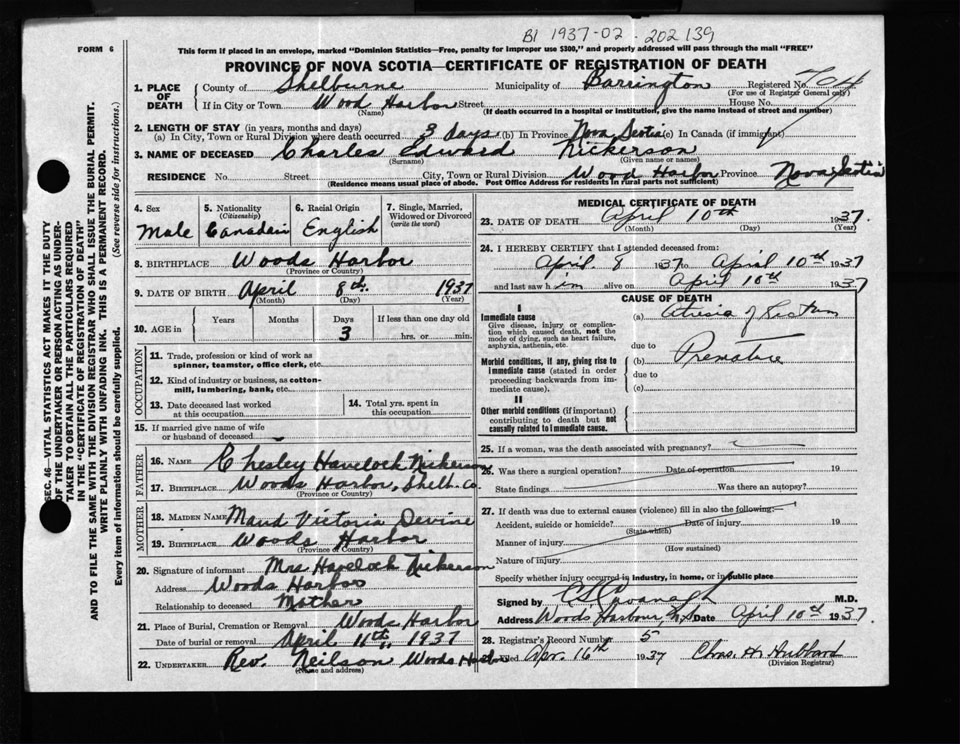 BI 1937-02-202139
FORM 6
This form if placed in an envelope, marked "Dominion Statistics—Free, penalty for improper use $300," and properly addressed will pass through the mail "FREE"
PROVINCE OF NOVA SCOTIA—CERTIFICATE OF REGISTRATION OF DEATH
1. PLACE OF DEATH County of Shelburne Municipality of Barrington Registered No. 704
(For use of Registrar General only)
If in City or Town Wood Harbor Street House No.
(Name) (If death occurred in a hospital or institution, give the name instead of street and number)
2. LENGTH OF STAY (in years, months and days)
(a) In City, Town or Rural Division where death occurred 3 days (b) In Province Nova Scotia (c) In Canada (if immigrant)
3. NAME OF DECEASED Charles Edward Nickerson
(Surname) (Given name or names)
RESIDENCE No. Street City, Town or Rural Division Wood Harbor Province Nova Scotia
(Residence means usual place of abode. Post Office Address for residents in rural parts not sufficient)
4. Sex Male
5. Nationality (Citizenship) Canadain
6. Racial Origin English
7. Single, Married, Widowed or Divorced (write the word)
8. BIRTHPLACE Woods Harbor
(Province or Country)
9. DATE OF BIRTH April 8th. 1937
(Month) (Day) (Year)
10. AGE in Years Months Days 3 If less than one day old hrs. or min.
OCCUPATION
11. Trade, profession or kind of work as spinner, teamster, office clerk, etc.
12. Kind of industry or business, as cotton-mill, lumbering, bank, etc.
13. Date deceased last worked at this occupation
14. Total yrs. spent in this occupation
15. If married give name of wife or husband of deceased
FATHER
16. NAME Chesley Havelock Nickerson
17. BIRTHPLACE Woods Harbor, Shelb. Co.
(Province or Country)
MOTHER
18. MAIDEN NAME Maud Victoria Devine
19. BIRTHPLACE Woods Harbor
(Province or Country)
20. Signature of informant Mrs Havelock Nickerson
Address Woods Harbor
Relationship to deceased Mother
21. Place of Burial, Cremation or Removal Woods Harbor
Date of burial or removal April 11th, 1937
22. UNDERTAKER Rev. Neilson Woods Harbor
(Name and address)
MEDICAL CERTIFICATE OF DEATH
23. DATE OF DEATH April 10th 1937.
(Month) (Day) (Year)
24. I HEREBY CERTIFY that I attended deceased from:
April. 8 1937 to April 10th 1937
and last saw him alive on April 10th 1937
CAUSE OF DEATH
I
Immediate cause
Give disease, injury or complication which caused death, not the mode of dying, such as heart failure, asphyxia, asthenia, etc.
(a) Atresia of Rectum
due to
Morbid conditions, if any, giving rise to immediate cause (stated in order proceeding backwards from immediate cause).
(b)
due to
(c)
II
Other morbid conditions (if important) contributing to death but not causally related to immediate cause.
25. If a woman, was the death associated with pregnancy?
26. Was there a surgical operation? Date of operation 19
State findings Was there an autopsy?
27. If death was due to external causes (violence) fill in also the following:—
Accident, suicide or homicide? Date of injury 19
(State which)
Manner of injury
(How sustained)
Nature of injury
Specify whether injury occurred in industry, in home, or in public place
Signed by Cavanagh M.D.
Address Woods Harbour, N.S Date April 10th 1937
28. Registrar's Record Number 5
Filed Apr. 16th 1937 Chas. H. Hubbard
(Division Registrar)
SEC. 46—VITAL STATISTICS ACT MAKES IT THE DUTY
OF THE UNDERTAKER OR PERSON ACTING AS UNDER-
TAKER TO OBTAIN ALL THE PARTICULARS REQUIRED
IN THE "CERTIFICATE OF REGISTRATION OF DEATH"
AND TO FILE THE SAME WITH THE DIVISION REGISTRAR WHO SHALL ISSUE THE BURIAL PERMIT.
WRITE PLAINLY WITH UNFADING INK. THIS IS A PERMANENT RECORD.
Every item of information should be carefully supplied. (See reverse side for instructions.)